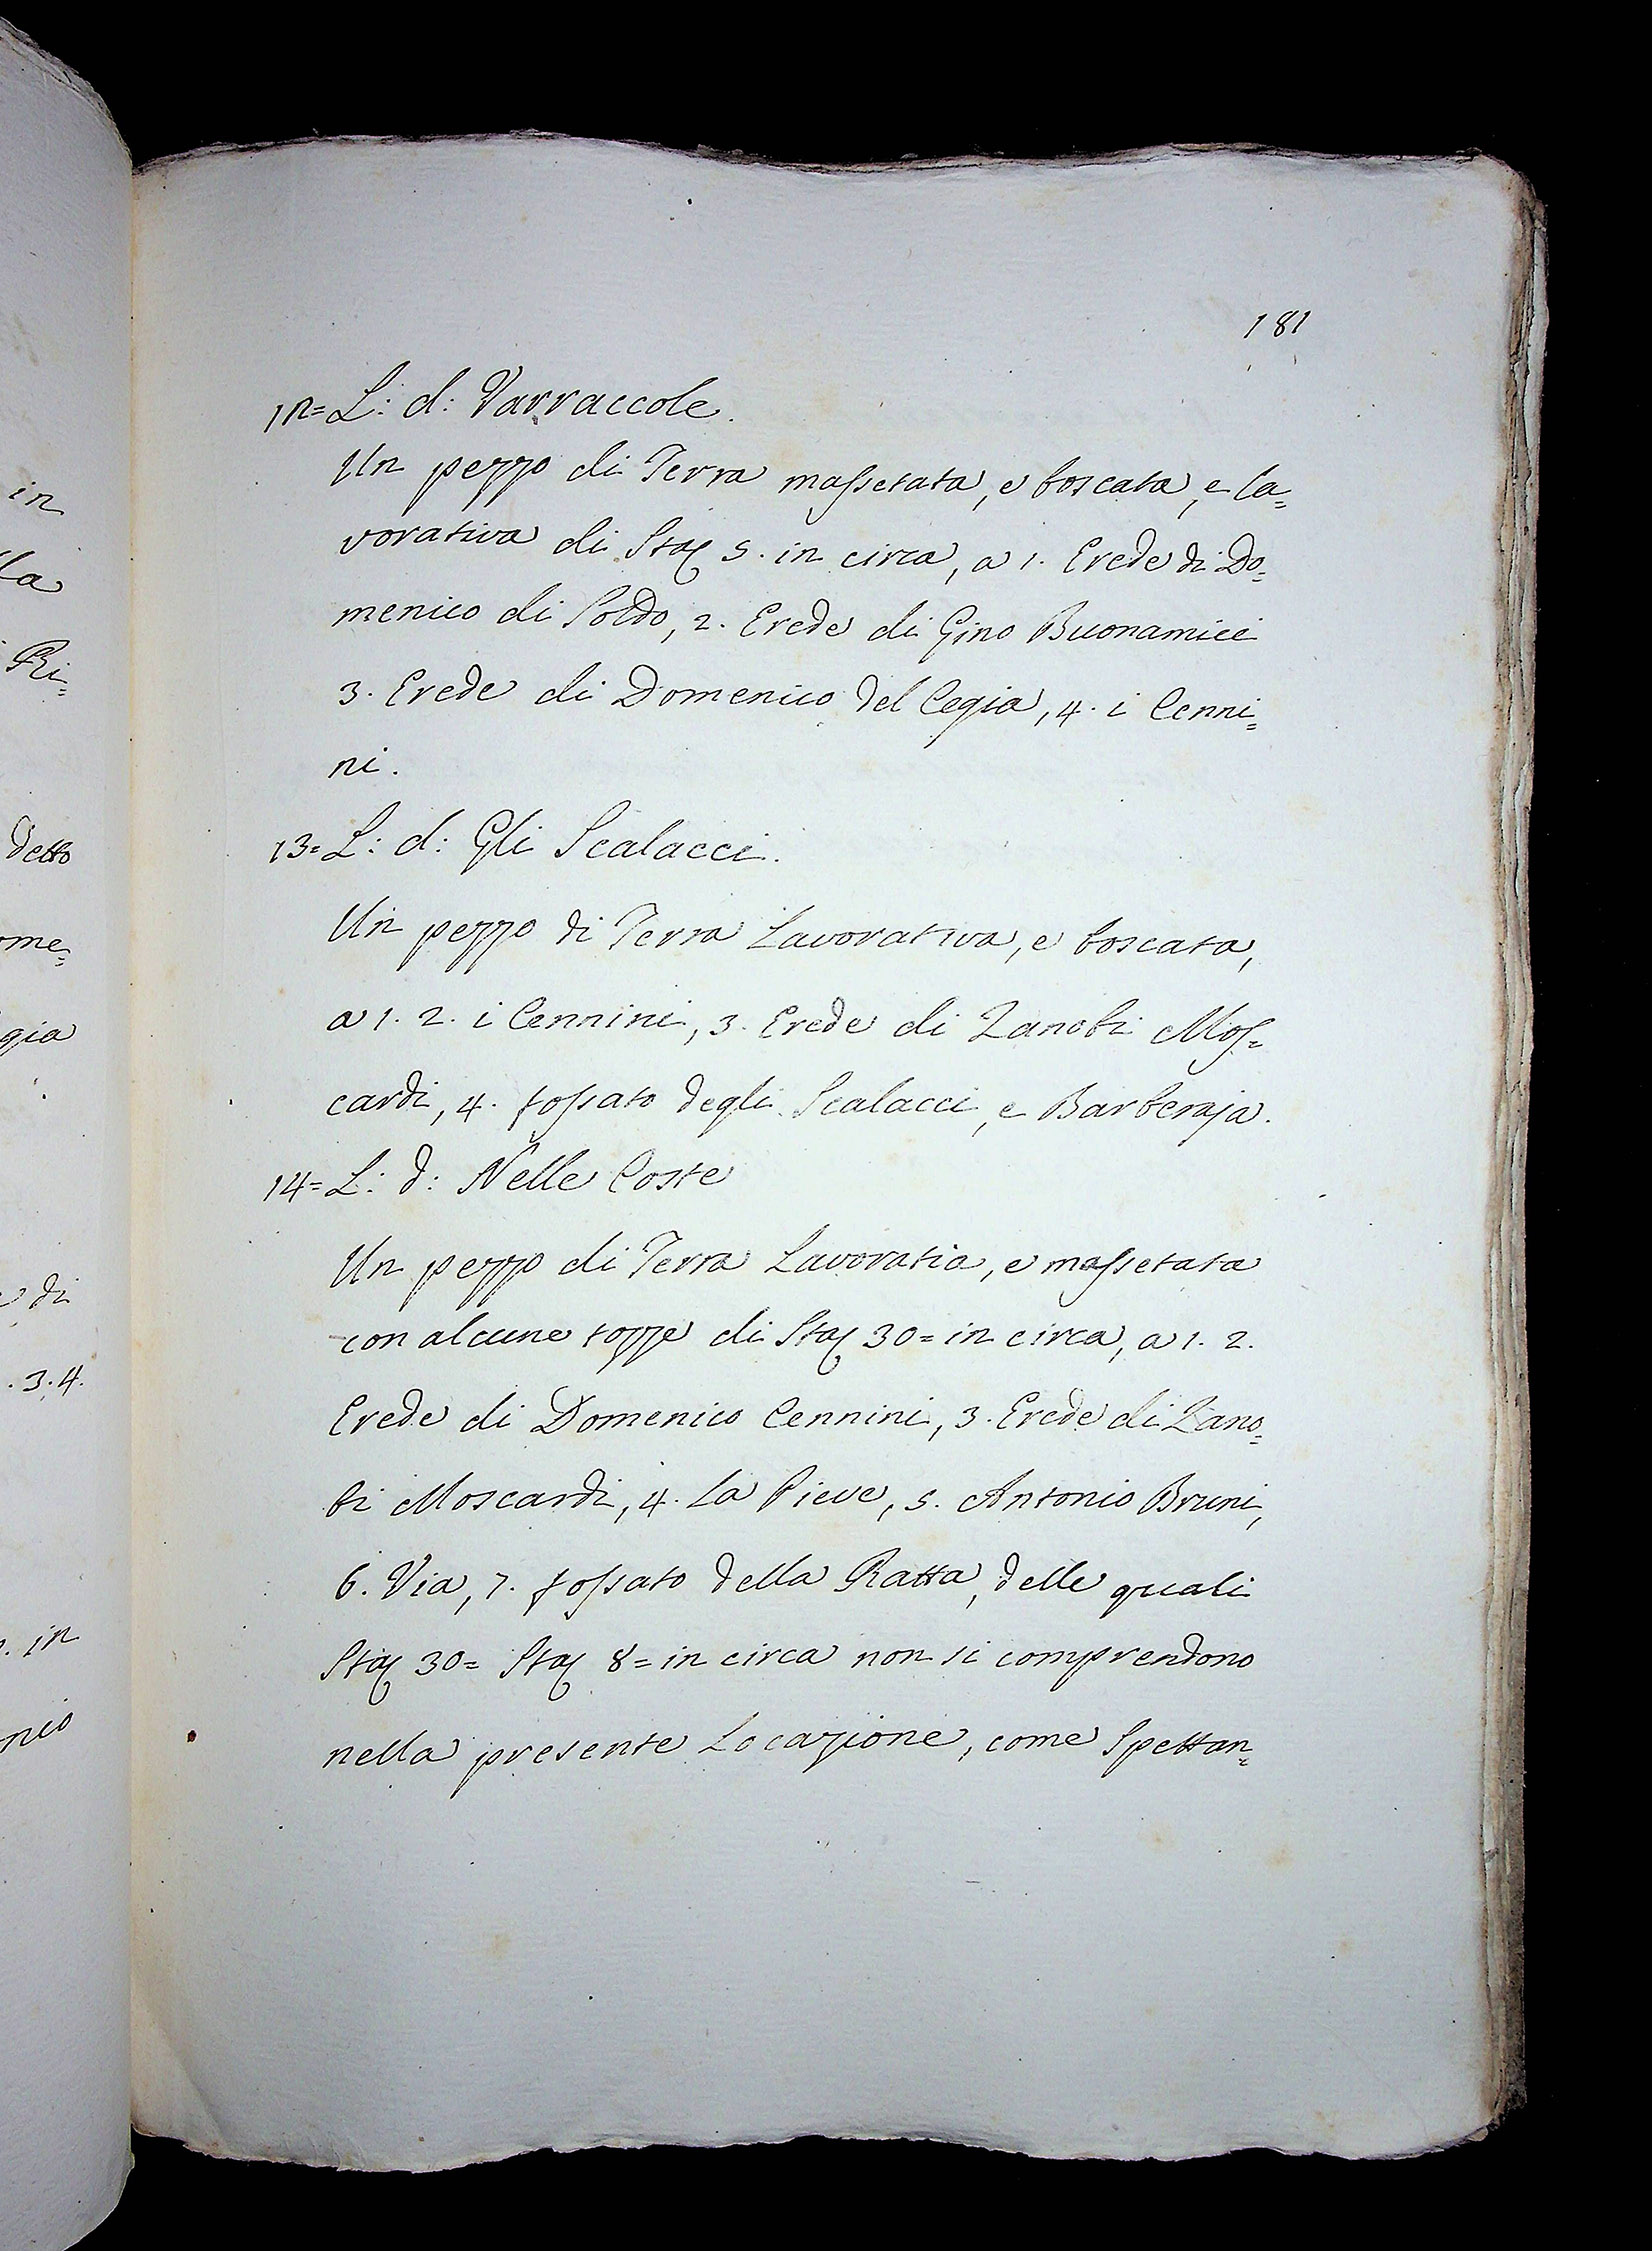 181
12= L: d: Varraccole.
Un pezzo di Terra massetata, e boscata, e la=
vorativa di Staj 5. in circa, a 1. Erede di Do=
menico di Poldo, 2. Erede di Gino Buonamici
3. Erede di Domenico del Cegia, 4. i Cenni=
ni.
13= L: d: Gli Scalacci.
Un pezzo di Terra Lavorativa, e boscata,
a 1. 2. i Cennini, 3. Erede di Zanobi Mos=
cardi, 4. fossato degli Scalacci, e Barberaja.
14= L: d: Nelle Coste
Un pezzo di Terra Lavoratia, e massetata
con alcune tozze di Staj 30= in circa, a 1. 2.
Erede di Domenico Cennini, 3. Erede di Zano=
bi Moscardi, 4. La Pieve, 5. Antonio Bruni,
6. Via, 7. fossato della Ratta, delle quali
Staj 30= Staj 8= in circa non si comprendono
nella presente Locazione, come Spettan=
in
la
Ri=
detto
ome=
gia
di
. 3. 4.
. in
nio